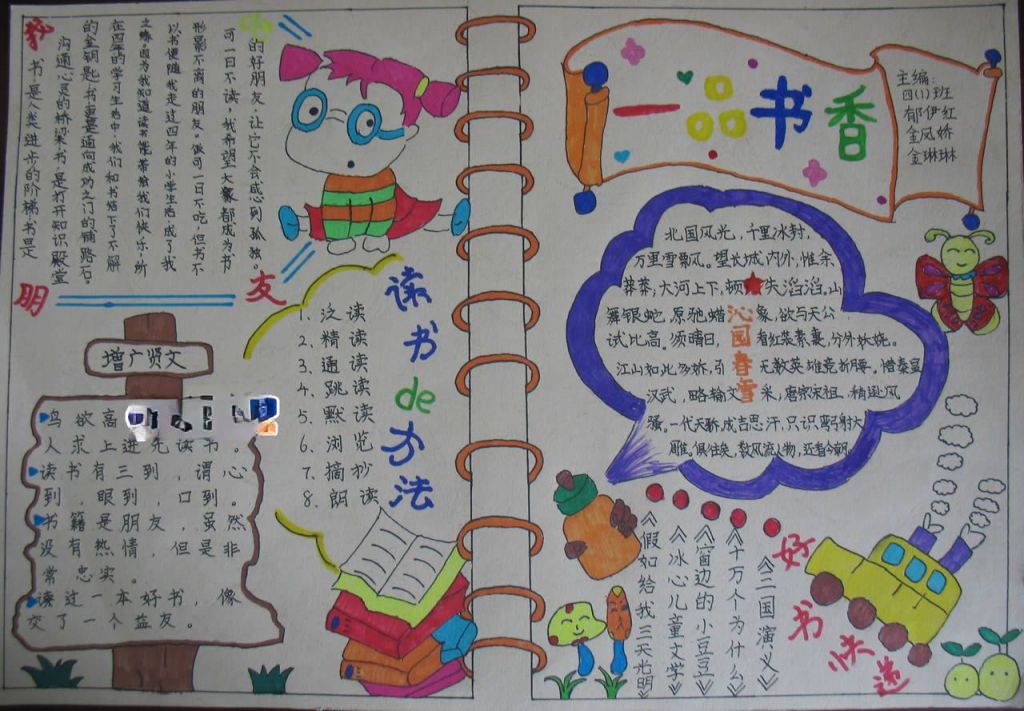 我
de
朋
友
书是人类进步的阶梯,书是
沟通心灵的桥梁,书是打开知识殿堂
的金钥匙,书更是通向成功之门的铺路石。
在四年的学习生活中,我们和书结下了不解
之缘。因为我知道读书能带给我们快乐。所
以书便随我走过四年的小学生活,成了我
形影不离的朋友。可一日不吃,但书不
可一日不读。我希望大家都成为书
的好朋友,让它不会感到孤独
增广贤文
鸟欲高
人求上进先读书。
读书有三到,谓心
到,眼到,口到。
书籍是朋友,虽然
没有热情,但是非
常忠实。
读过一本好书,像
交了一个益友。
读书de方法
1、泛读
2、精读
3、通读
4、跳读
5、默读
6、浏览
7、摘抄
8、朗读
一品书香
主编:
四(1)班
郁伊红
金凤娇
金琳琳
沁园春雪
北国风光,千里冰封,
万里雪飘。望长城内外,惟余
莽莽;大河上下,顿失滔滔。山
舞银蛇,原驰蜡象,欲与天公
试比高。须晴日,看红装素裹,分外妖娆。
江山如此多娇,引无数英雄竞折腰。惜秦皇
汉武,略输文采,唐宗宋祖,稍逊风
骚。一代天骄,成吉思汗,只识弯弓射大
雕。俱往矣,数风流人物,还看今朝。
好书快递
《三国演义》
《十万个为什么》
《窗边的小豆豆》
《冰心儿童文学》
《假如给我三天光明》